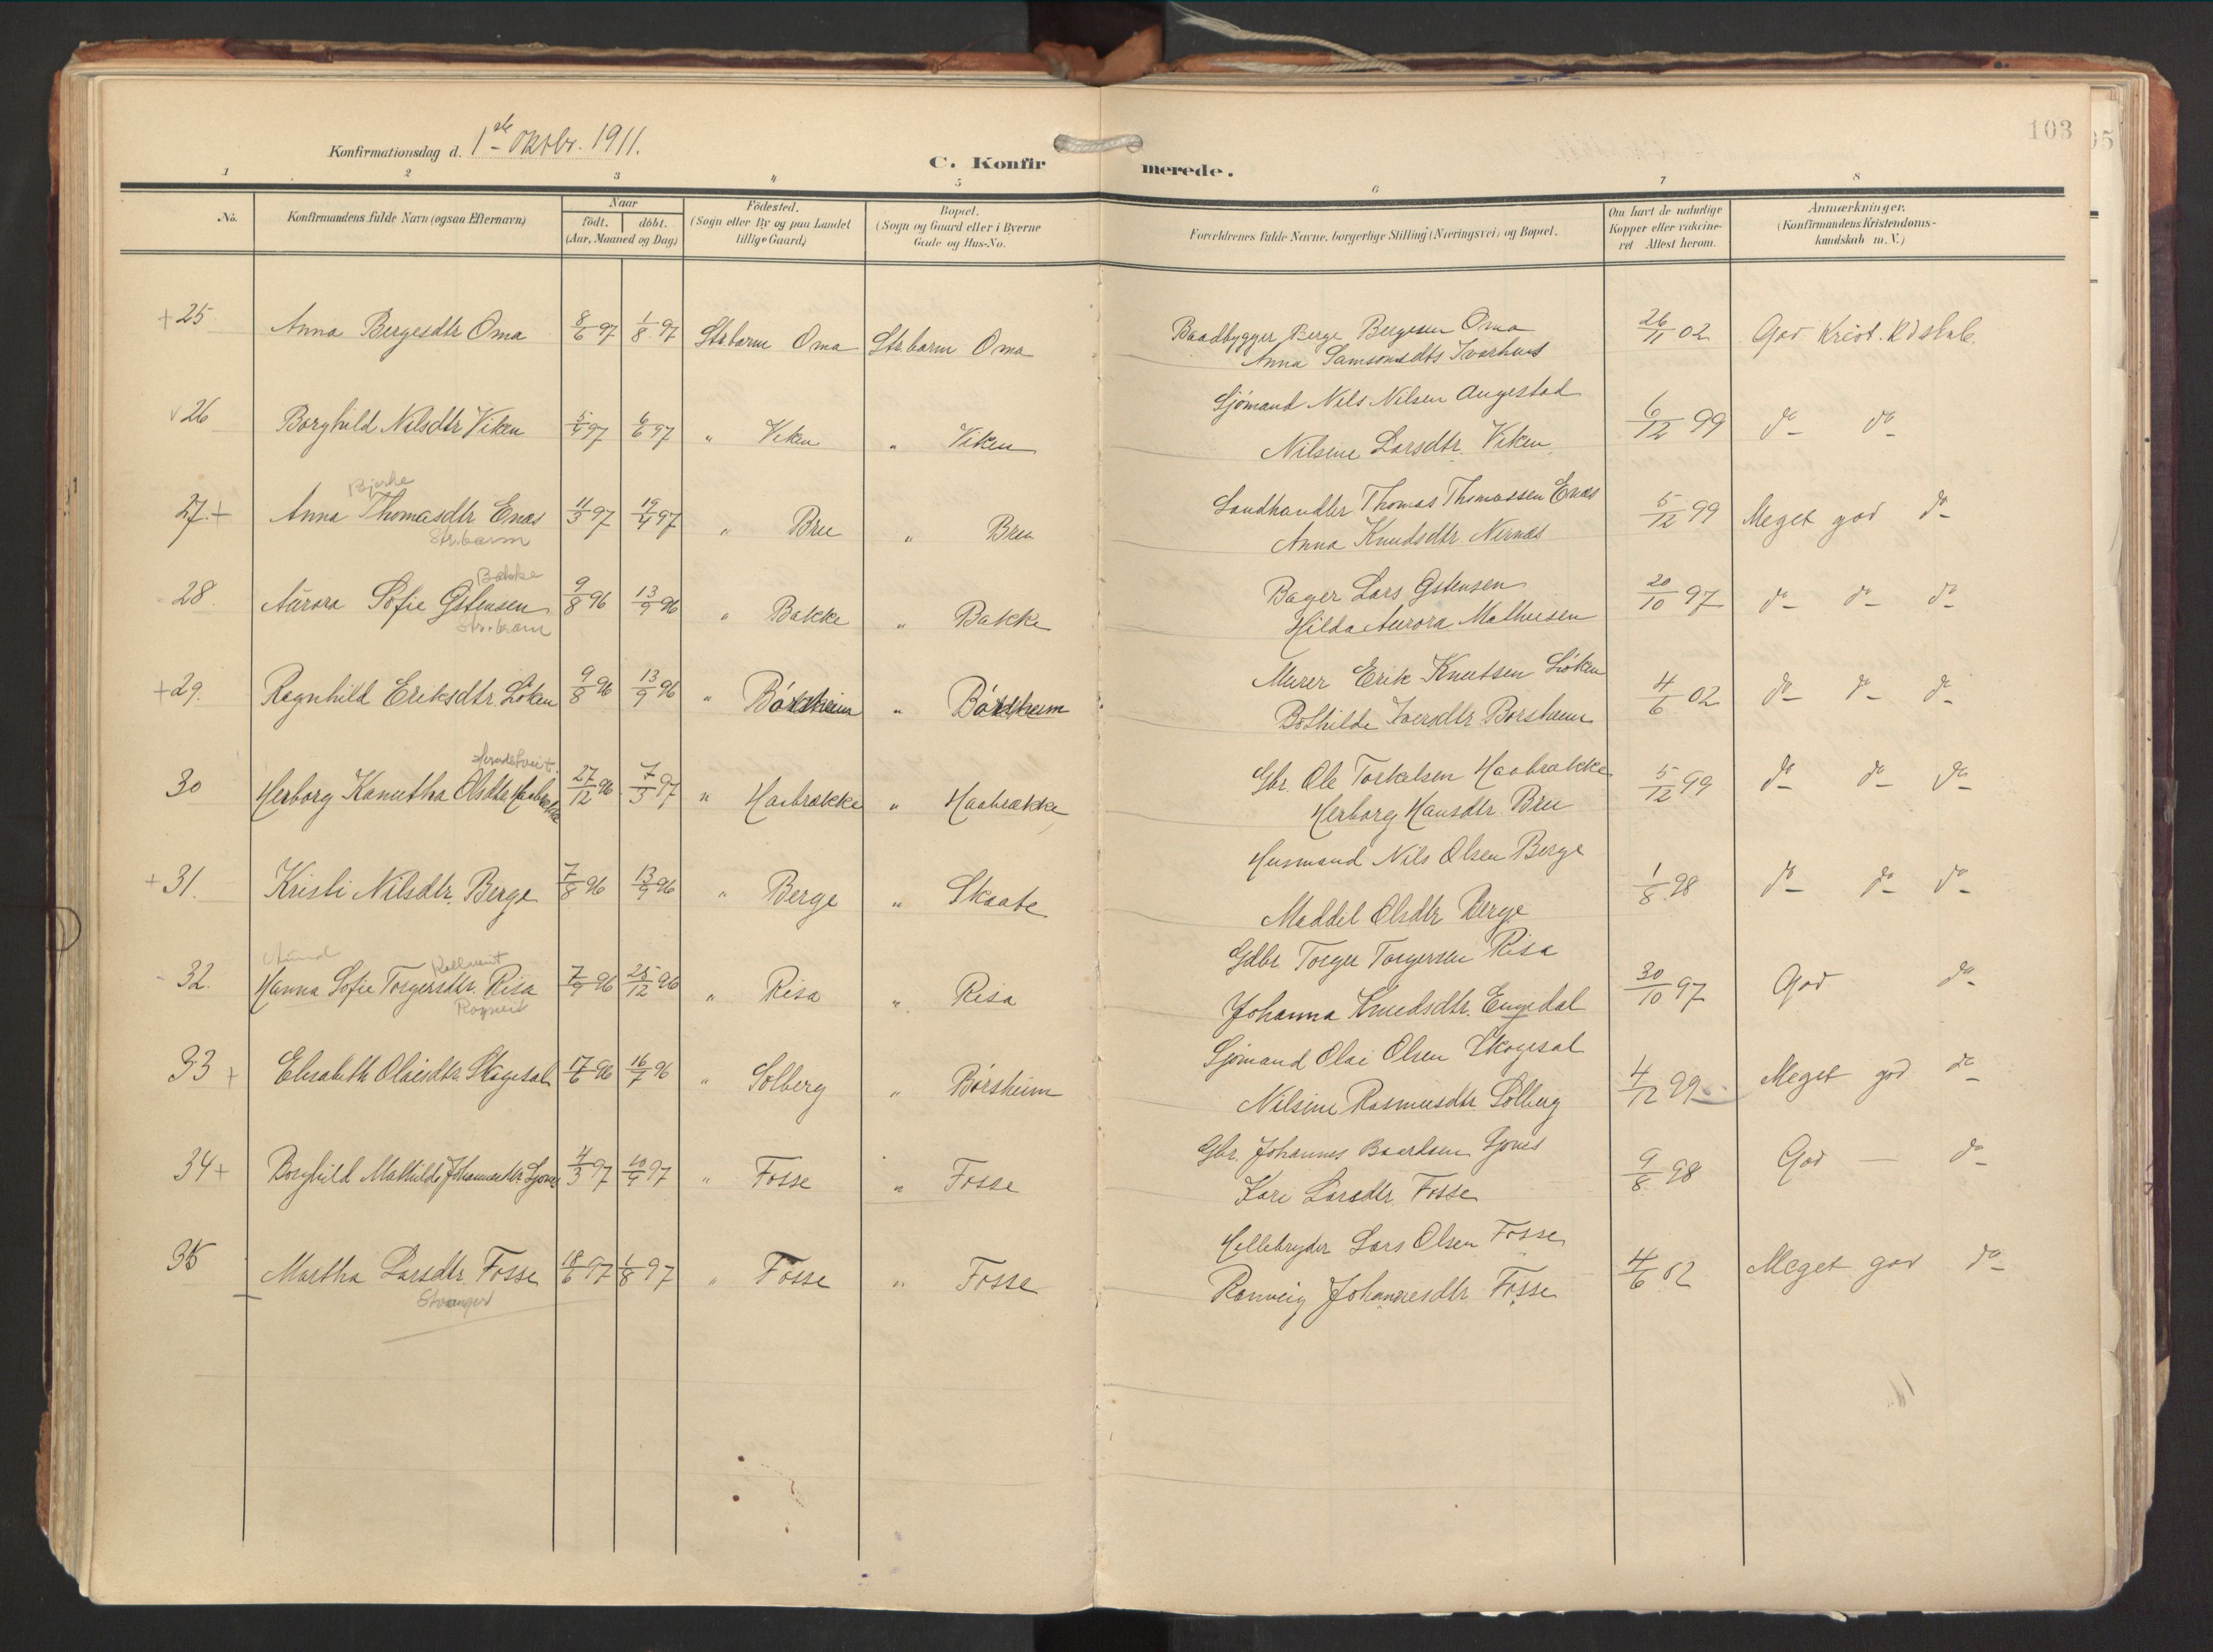 103
Konfirmationsdag d. 1ste Oktbr. 1911.
C. Konfirmerede.
1 2 3 4 5 6 7 8
No.
Konfirmandens fulde Navn (ogsaa Efternavn)
Naar
födt. döbt.
(Aar, Maaned og Dag)
Födested.
(Sogn eller By og paa Landet
tillige Gaard)
Bopæl.
(Sogn og Gaard eller i Byerne
Gade og Hus-No.
Forældrenes fulde Navne, borgerlige Stilling (Næringsvei) og Bopæl.
Om havt de naturlige
Kopper eller vakcine-
ret Attest herom.
Anmærkninger.
(Konfirmandens Kristendoms-
kundskab m. V.)
+ 25 Anna Bergesdtr Oma 8/6 97 1/8 97 Strbarm Oma Strbarm Oma Baadbygger Berge Bergesen Oma 26/11 02 God Krist. Kdskab.
Anna Samsonsdtr Ivarhus
√ 26 Borghild Nilsdtr Viken 5/4 97 6/6 97 " Viken " Viken Sjömand Nils Nilsen Augestad 6/12 99 do do
Nilsine Larsdtr. Viken
Bjerke
27. + Anna Thomasdtr Enæs 11/3 97 19/4 97 " Bru " Bru Landhandler Thomas Thomassen Enæs 5/12 99 Meget god do
Strbarm
Anna Knudsdtr. Nernæs
Bakke
28. Aurora Sofie Gstensen 9/8 96 13/9 96 " Bakke " Bakke Bager Lars Gstensen 20/10 97 do do do
Strbarm
Hilda Aurora Mathisen
+ 29. Ragnhild Eriksdtr. Löken 9/8 96 13/9 96 " Börsheim " Börsheim Murer Erik Knutsen Löken 4/6 02 do do do
Bothilde Iversdtr Borsheim
30 Herborg Kanutha Olsdtr. Haabrekke 27/12 96 7/3 97 " Haabrekke " Haabrekke Gbr. Ole Torkelsen Haabrekke 5/12 99 do do do
Herborg Hansdtr. Bru
+ 31. Kristi Nilsdtr. Berge 7/8 96 13/9 96 " Berge " Skaate Husmand Nils Olsen Berge 1/8 98 do do do
Maddel Olsdtr Berge
- 32. Hanna Sofie Torgersdtr. Risa 7/9 96 25/12 96 " Risa " Risa Gdbr Torger Torgersen Risa 30/10 97 God do
Johanna Knudsdtr. Engedal
33 + Elisabeth Olaisdtr. Skogesal 17/6 96 16/7 96 " Solberg " Börsheim Sjömand Olai Olsen Skogesal 4/12 99 Meget god do
Nilsine Rasmusdtr. Solberg
34 + Borghild Mathilde Johannesdtr Gjönes 4/3 97 10/4 97 " Fosse " Fosse Gbr. Johannes Baardsen Gjönes 9/8 98 God — do
Kari Larsdtr. Fosse
35 Martha Larsdtr. Fosse 18/6 97 1/8 97 " Fosse " Fosse Hellebryder Lars Olsen Fosse 4/6 02 Meget god do
Ranveig Johannesdtr. Fosse